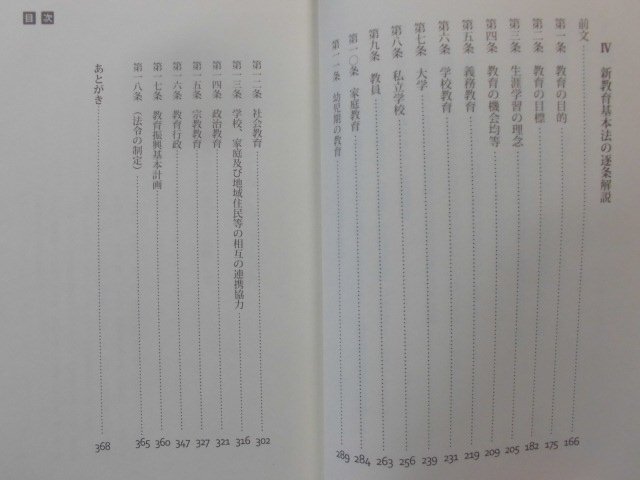 Ⅳ 新教育基本法の逐条解説
前文 166
第一条 教育の目的 175
第二条 教育の目標 182
第三条 生涯学習の理念 205
第四条 教育の機会均等 209
第五条 義務教育 219
第六条 学校教育 231
第七条 大学 239
第八条 私立学校 256
第九条 教員 263
第一〇条 家庭教育 284
第一一条 幼児期の教育 289
目次
第一二条 社会教育 302
第一三条 学校、家庭及び地域住民等の相互の連携協力 316
第一四条 政治教育 321
第一五条 宗教教育 327
第一六条 教育行政 347
第一七条 教育振興基本計画 360
第一八条 (法令の制定) 365
あとがき 368